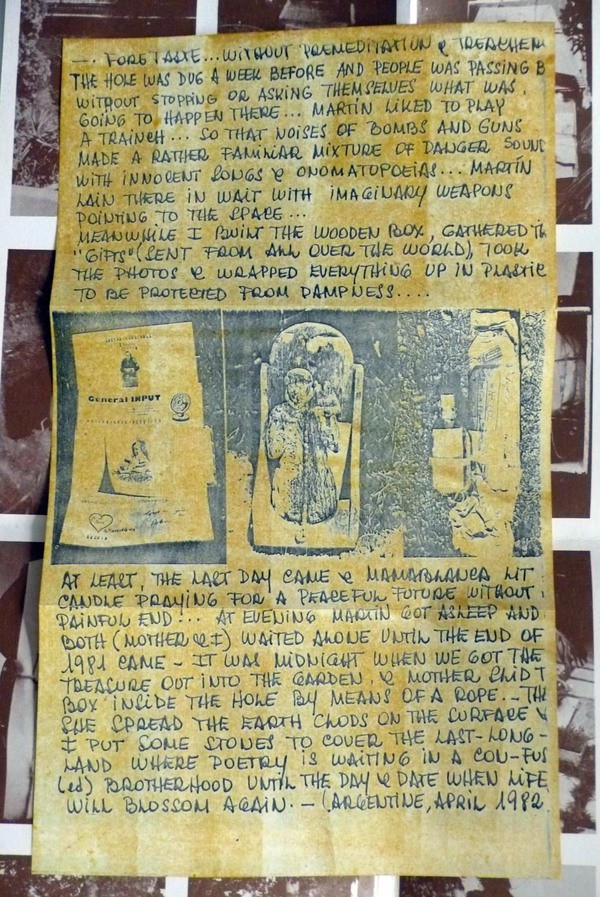 —. FORETASTE... WITHOUT PREMEDITATION & TREACHER
THE HOLE WAS DUG A WEEK BEFORE AND PEOPLE WAS PASSING B
WITHOUT STOPPING OR ASKING THEMSELVES WHAT WAS
GOING TO HAPPEN THERE... MARTÍN LIKED TO PLAY
A TRAINCH... SO THAT NOISES OF BOMBS AND GUNS
MADE A RATHER FAMILIAR MIXTURE OF DANGER SOUND
WITH INNOCENT SONGS & ONOMATOPOEIAS... MARTÍN
LAIN THERE IN WAIT WITH IMAGINARY WEAPONS
POINTING TO THE SPACE...
MEANWHILE I BUILT THE WOODEN BOX, GATHERED TH
"GIFTS" (SENT FROM ALL OVER THE WORLD), TOOK
THE PHOTOS & WRAPPED EVERYTHING UP IN PLASTIC
TO BE PROTECTED FROM DAMPNESS....
General INPUT
AT LEAST, THE LAST DAY CAME & MAMABLANCA LIT
CANDLE PRAYING FOR A PEACEFUL FUTURE WITHOUT
PAINFUL END!.. AT EVENING MARTÍN GOT ASLEEP AND
BOTH (MOTHER & I) WAITED ALONE UNTIL THE END OF
1981 CAME - IT WAS MIDNIGHT WHEN WE GOT THE
TREASURE OUT INTO THE GARDEN, & MOTHER SLID T
BOX INSIDE THE HOLE BY MEANS OF A ROPE.- TH
SHE SPREAD THE EARTH CLODS ON THE SURFACE &
I PUT SOME STONES TO COVER THE LAST-LONG-
LAND WHERE POETRY IS WAITING IN A CON-FUS
(ed) BROTHERHOOD UNTIL THE DAY & DATE WHEN LIFE
WILL BLOSSOM AGAIN. - (ARGENTINE, APRIL 1982